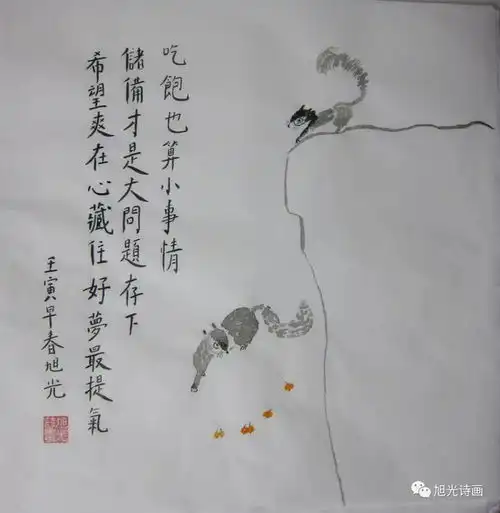 吃飽也算小事情
儲備才是大問題存下
希望爽在心藏住好夢最提氣
壬寅早春旭光
旭光诗画